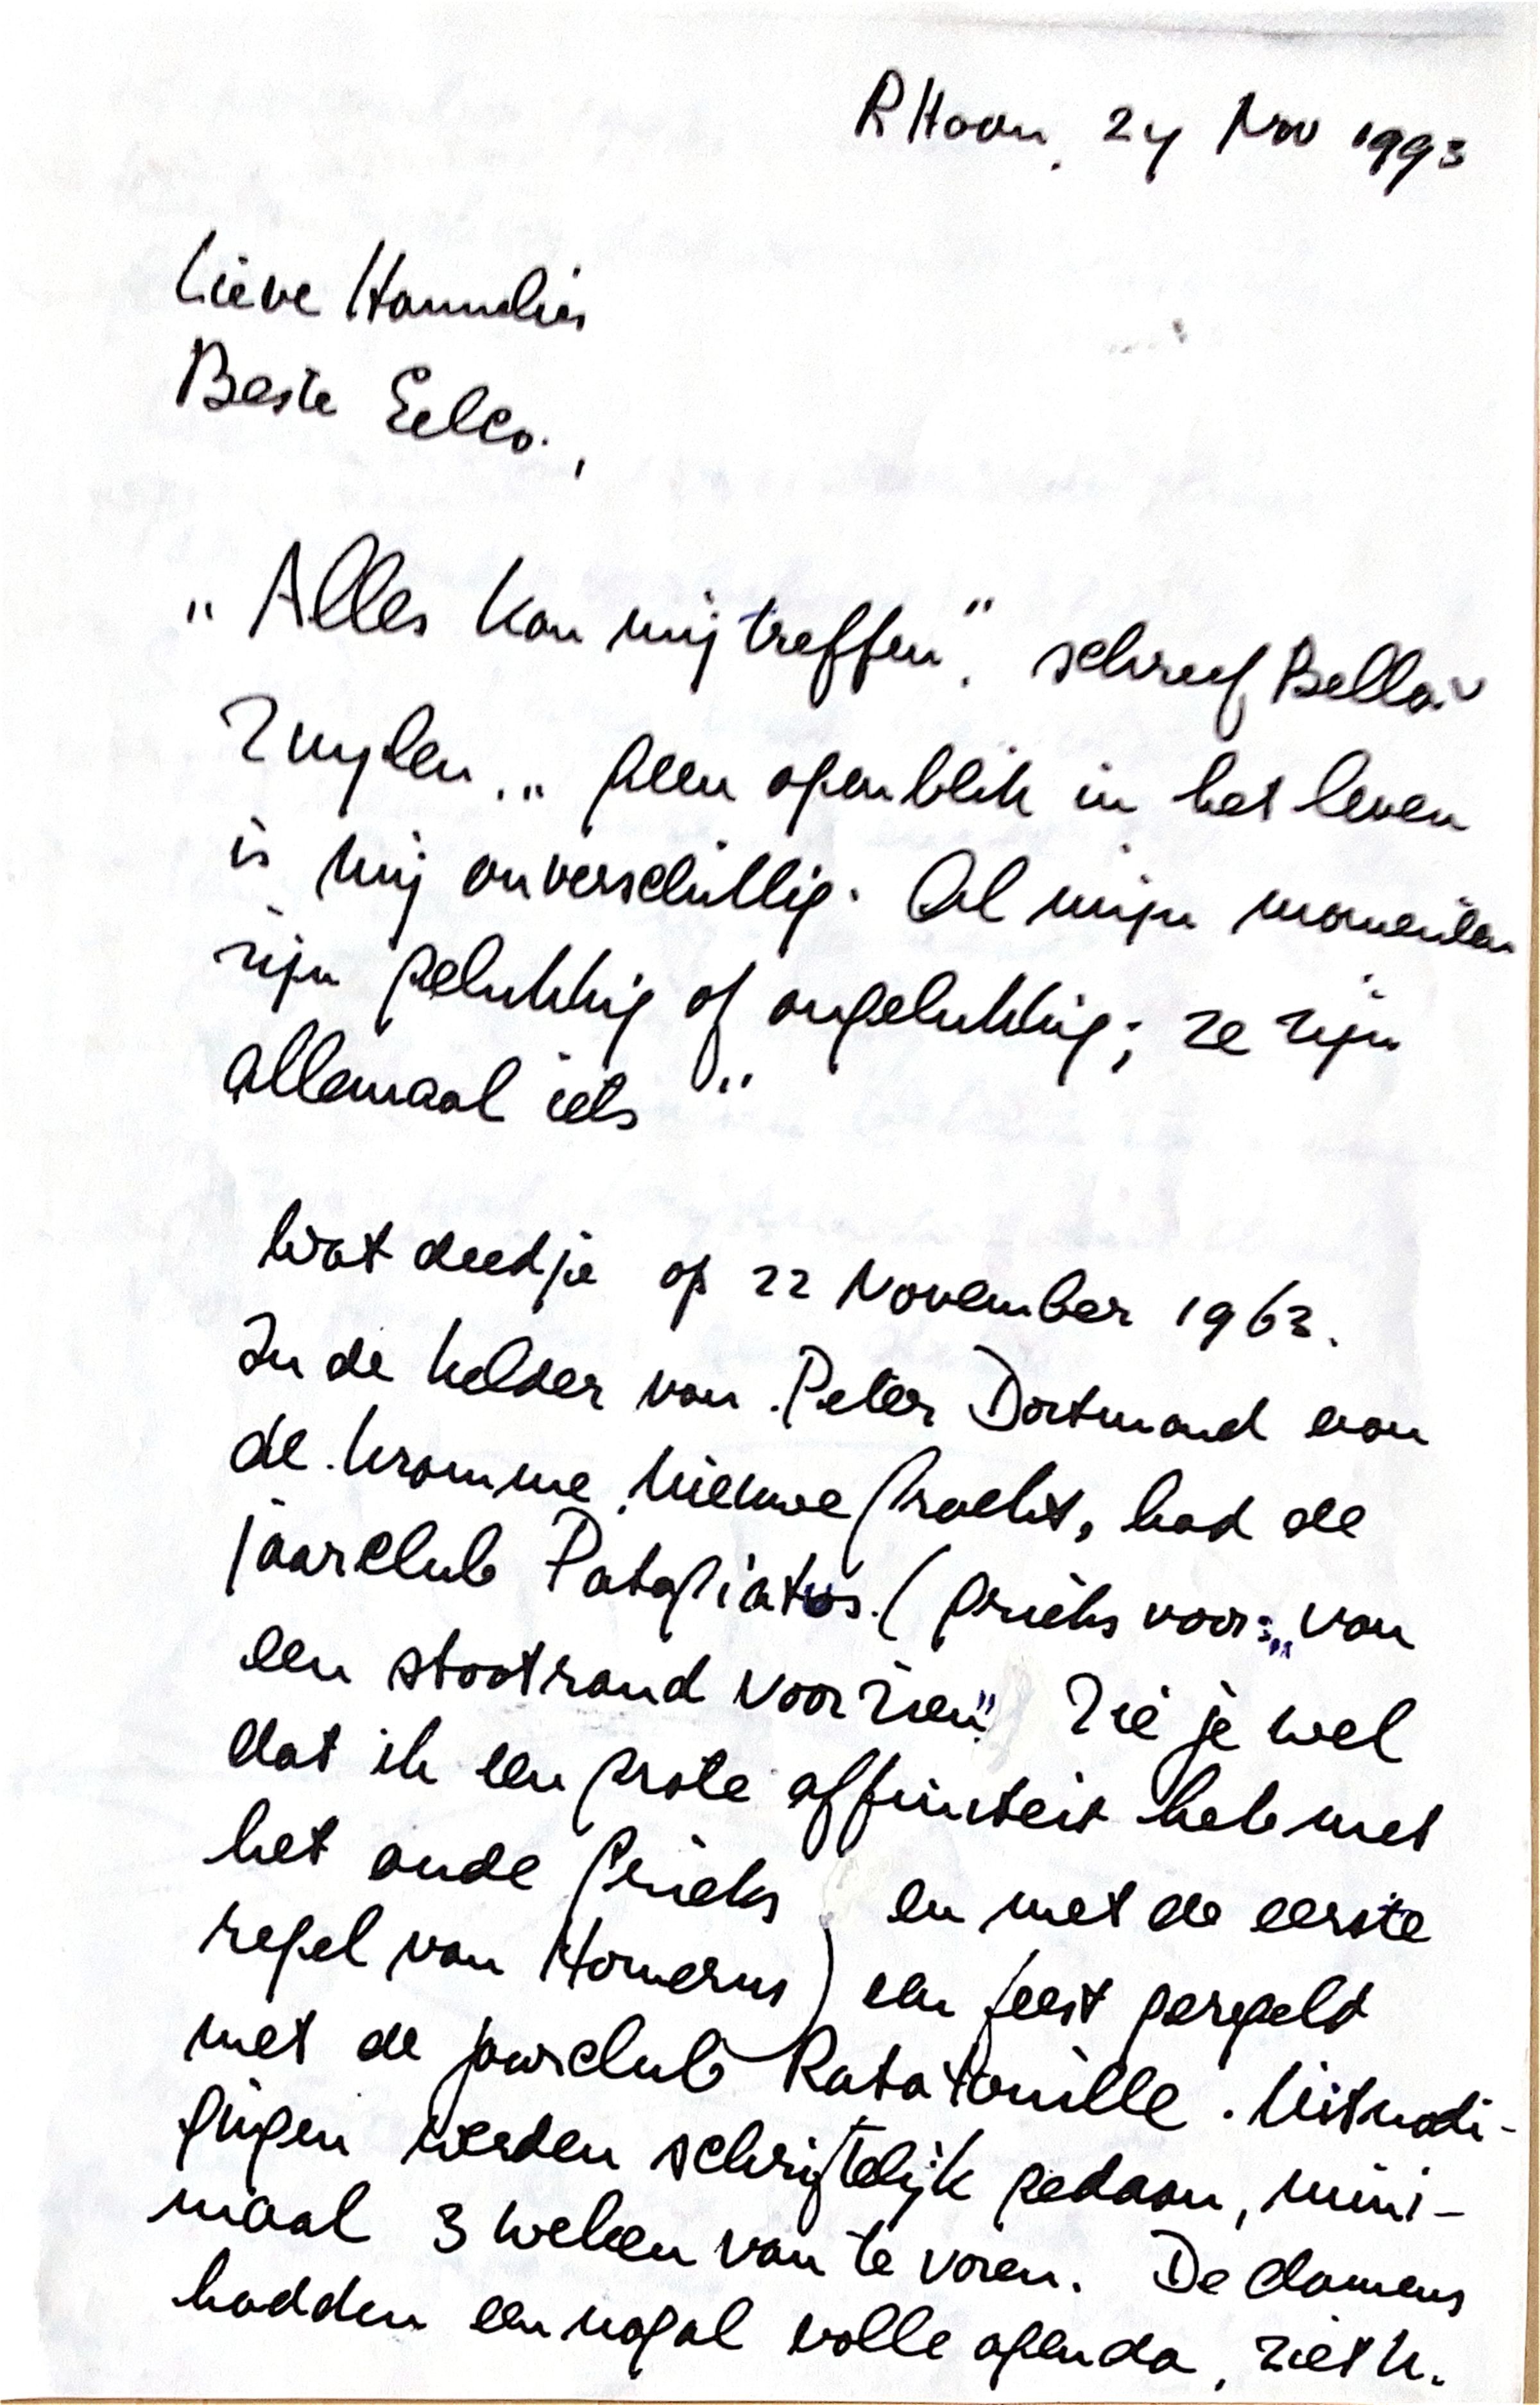 RHoon, 24 Nov 1993
Lieve Hannelies
Beste Eelco.,
„ Alles kan mij treffen", schreef Bella v
Zuylen, „ geen ogenblik in het leven
is mij onverschillig. Al mijn momenten
zijn gelukkig of ongelukkig; ze zijn
allemaal iets "
Wat deed je op 22 November 1963.
In de kelder van Peter Dortmond aan
de kromme nieuwe gracht, had de
jaarclub Patagiatus. ( grieks voor: „ van
een stootrand voorzien" Zie je wel
dat ik een grote affiniteit heb met
het oude grieks en met de eerste
regel van Homerus) een feest geregeld
met de jaarclub Ratatouille. Uitnodi-
gingen werden schriftelijk gedaan, mini-
maal 3 weken van te voren. De damens
hadden een nogal volle agenda, ziet U.